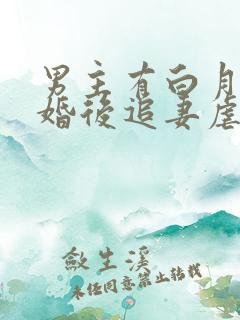 男主有白月
婚後追妻虐
敘生溪
未經同意禁止轉載